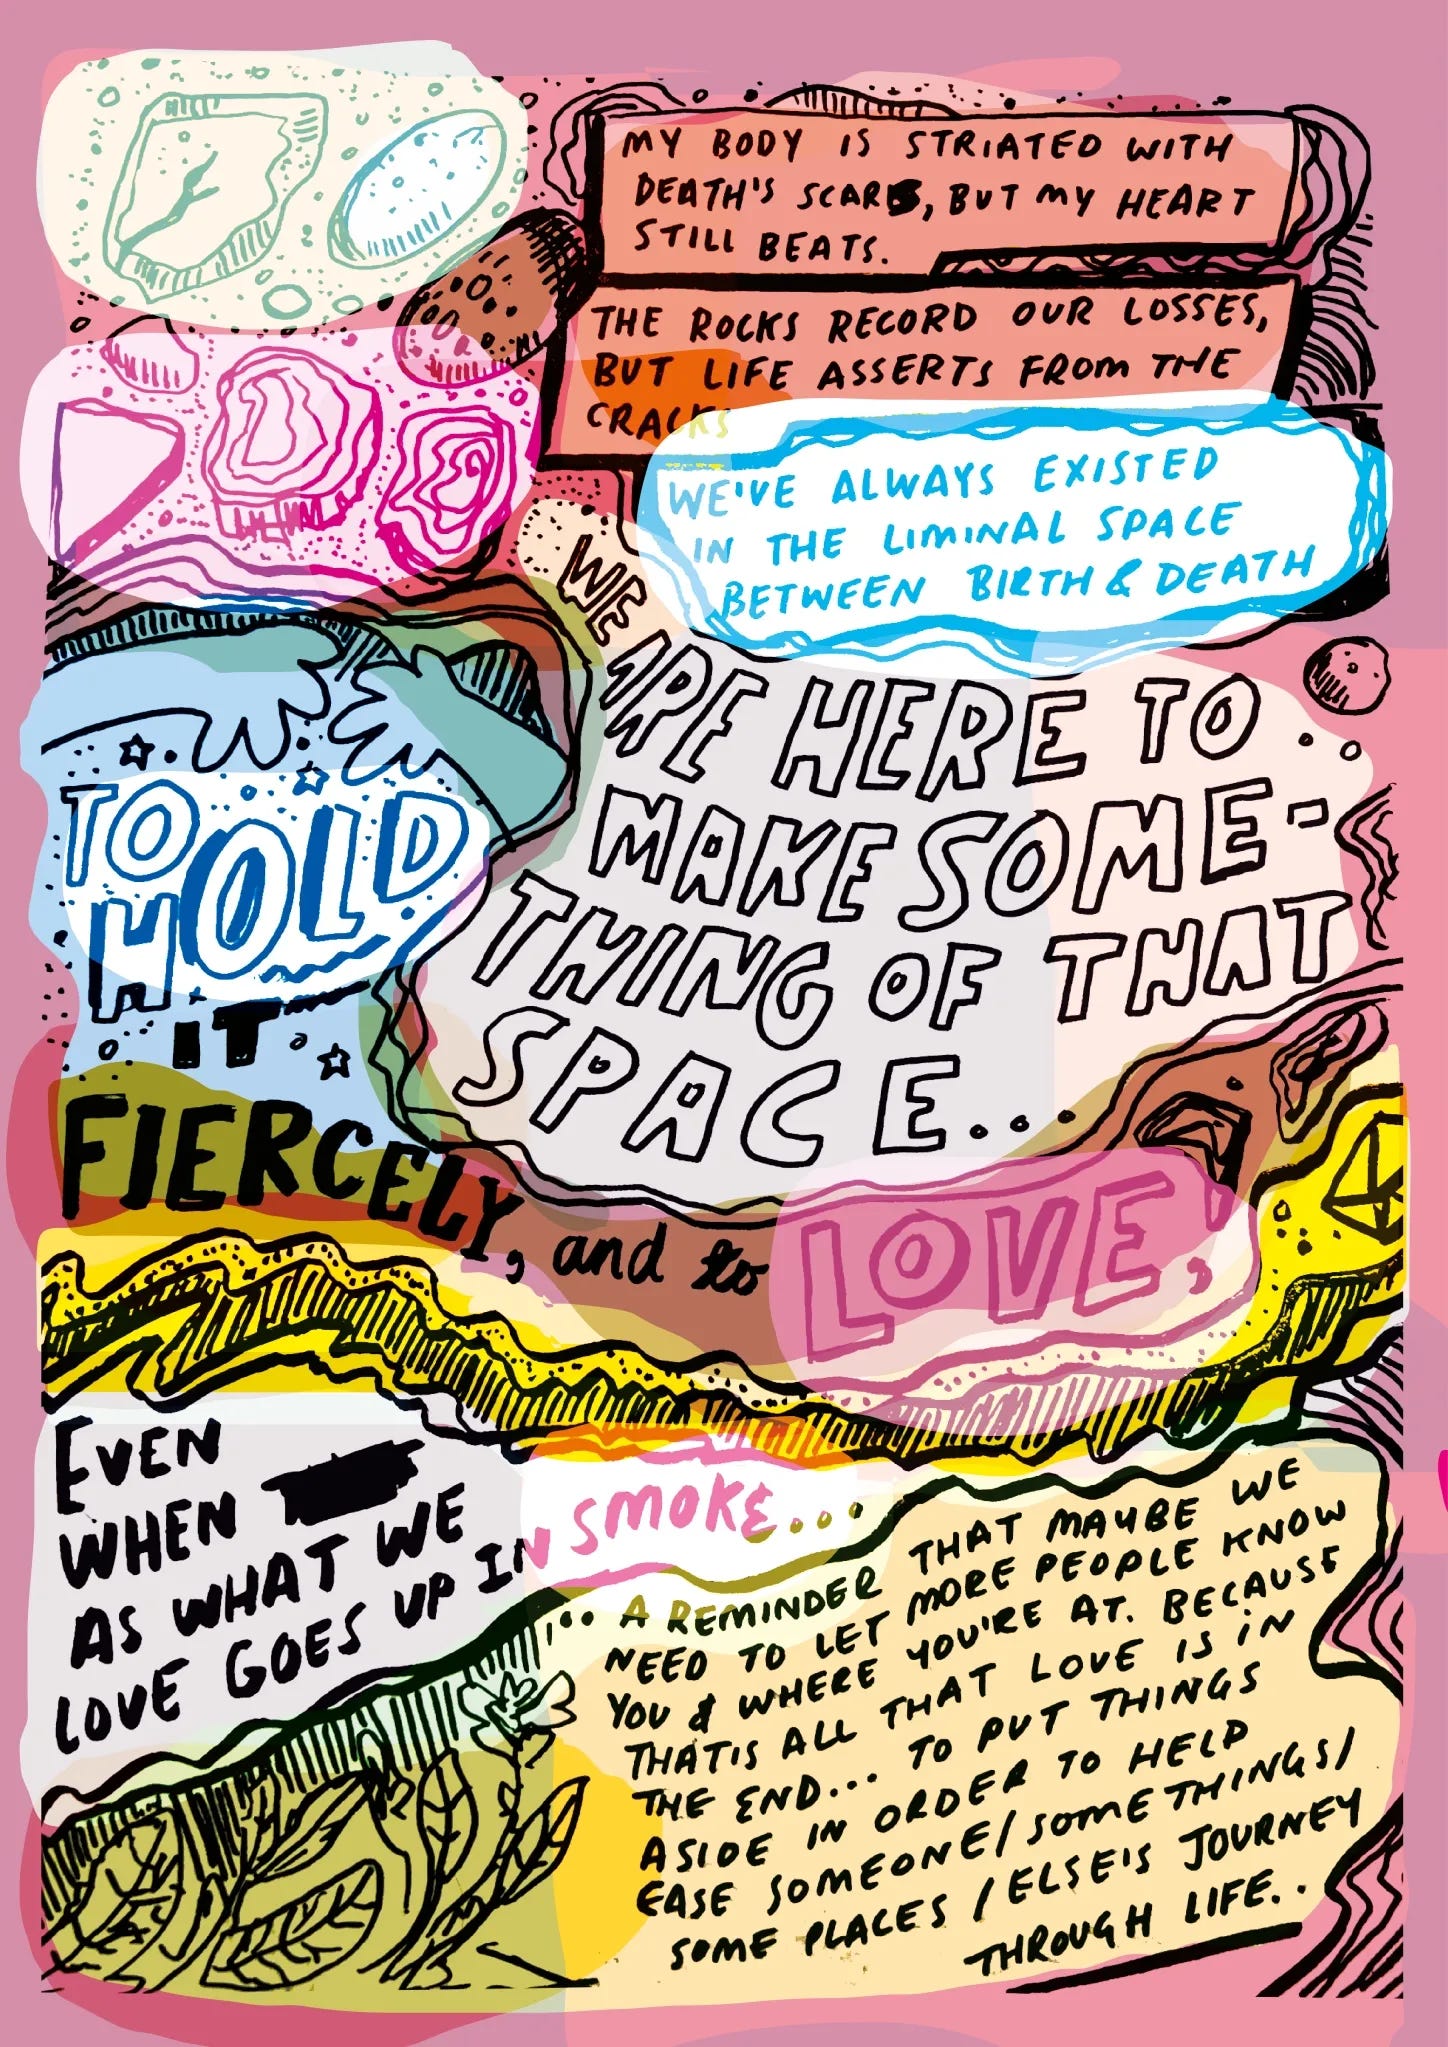 MY BODY IS STRIATED WITH
DEATH'S SCARS, BUT MY HEART
STILL BEATS.
THE ROCKS RECORD OUR LOSSES,
BUT LIFE ASSERTS FROM THE
CRACKS
WE'VE ALWAYS EXISTED
IN THE LIMINAL SPACE
BETWEEN BIRTH & DEATH
WE ARE HERE TO
MAKE SOME-
THING OF THAT
SPACE...
TO
HOLD
IT
FIERCELY, and to LOVE,
EVEN
WHEN
AS WHAT WE
LOVE GOES UP IN SMOKE...
... A REMINDER THAT MAYBE WE
NEED TO LET MORE PEOPLE KNOW
YOU & WHERE YOU'RE AT. BECAUSE
THAT'S ALL THAT LOVE IS IN
THE END... TO PUT THINGS
ASIDE IN ORDER TO HELP
EASE SOMEONE/SOMETHINGS/
SOME PLACES /ELSE'S JOURNEY
THROUGH LIFE..